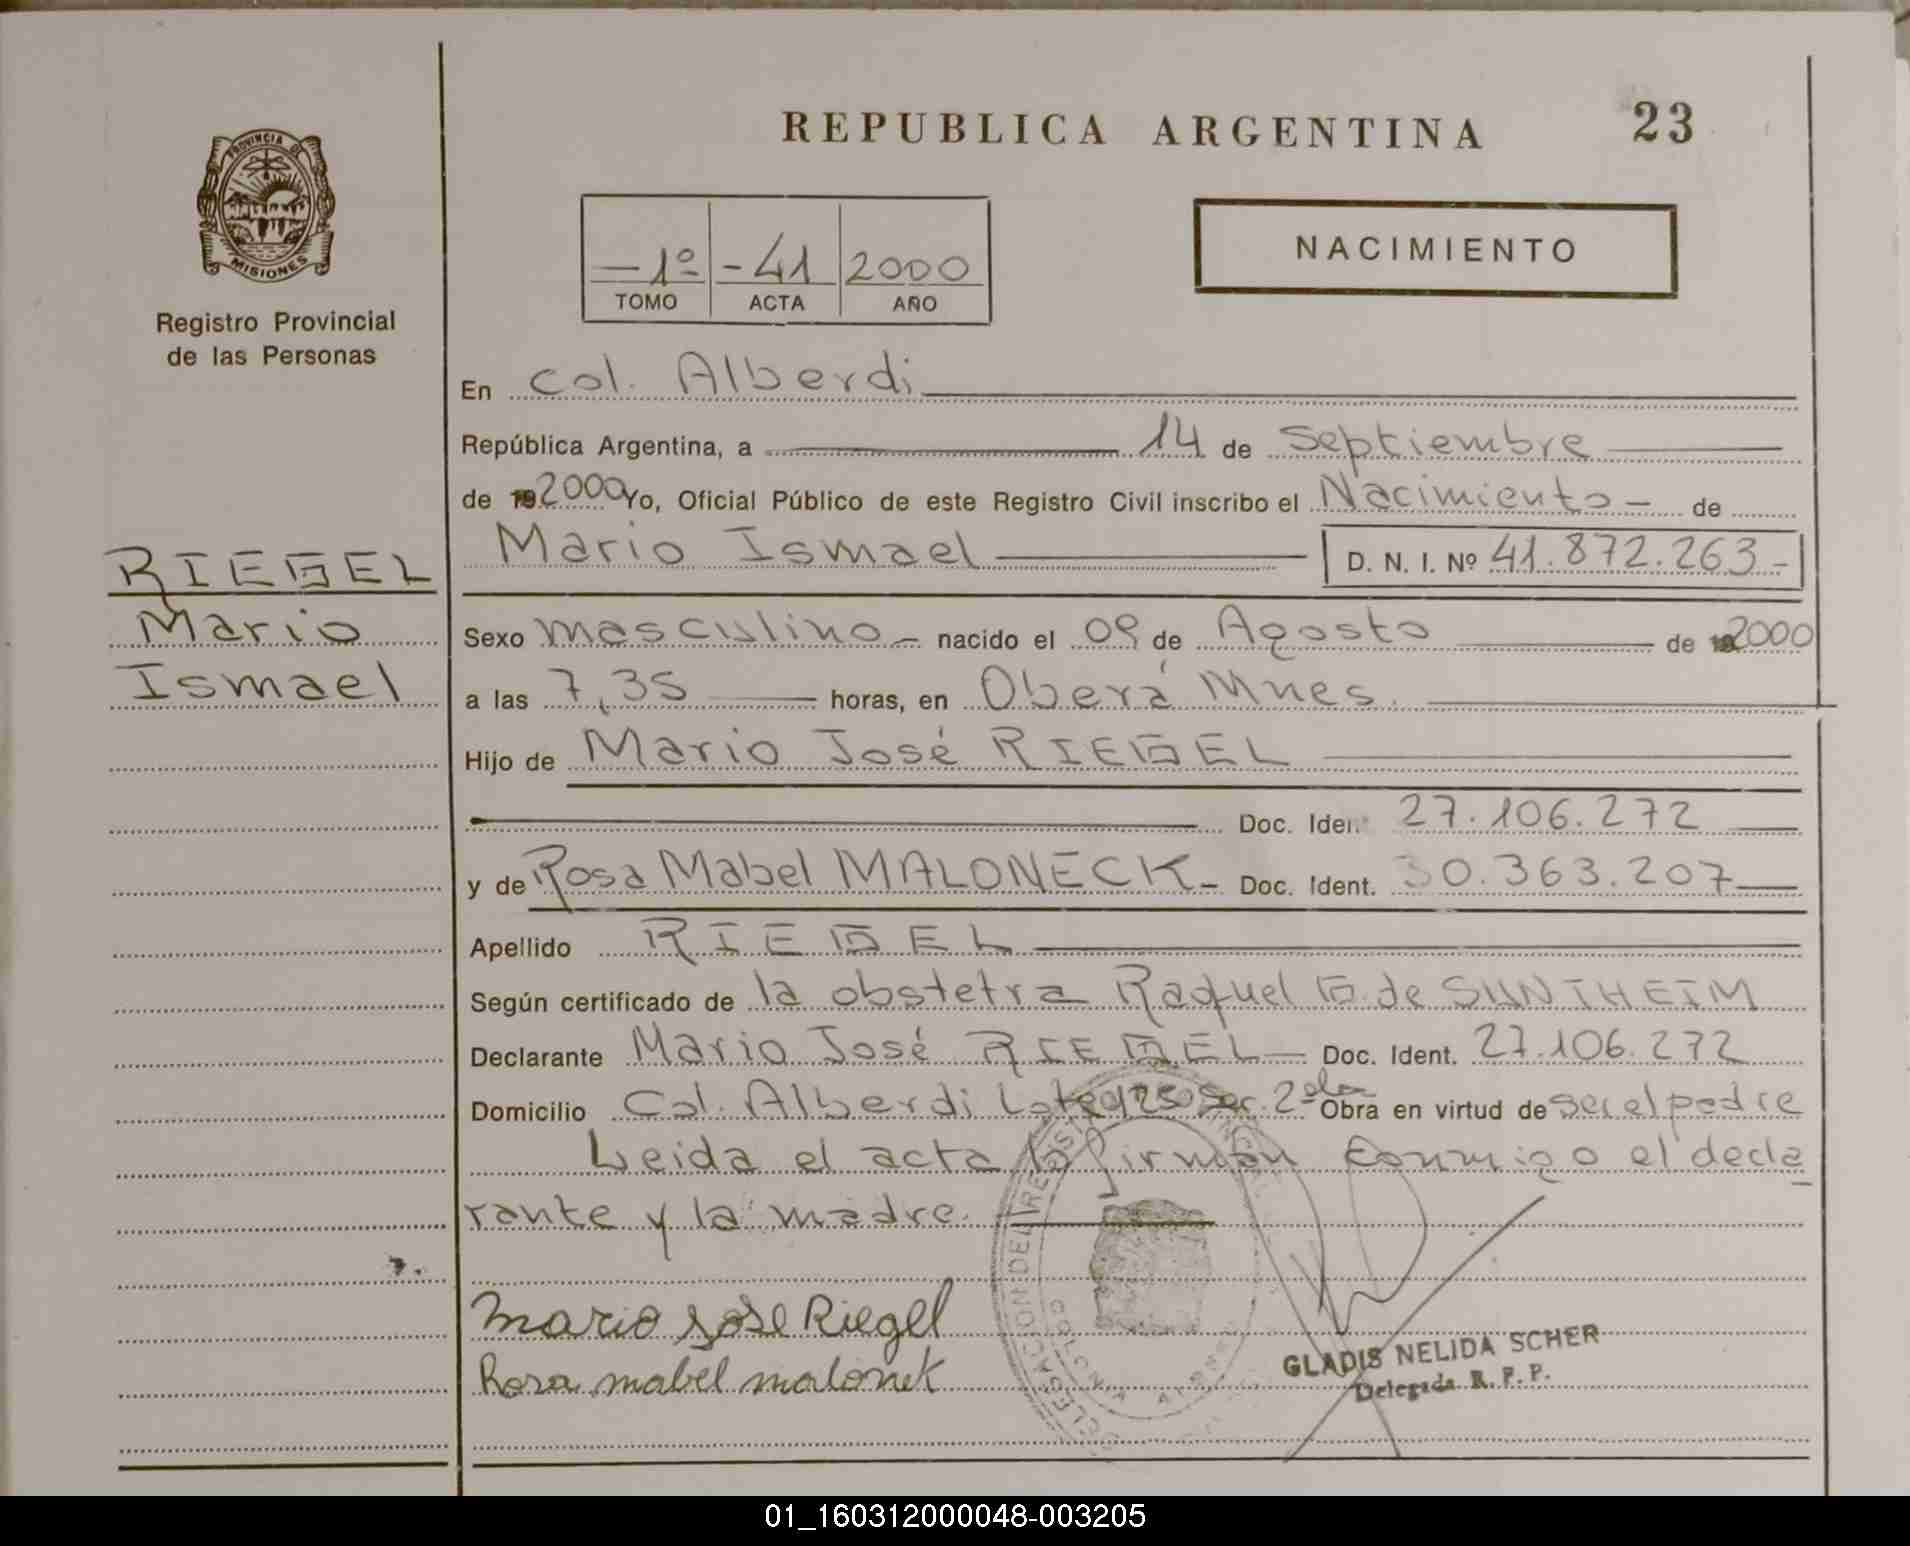 REPUBLICA ARGENTINA
23
PROVINCIA DE
MISIONES
Registro Provincial
de las Personas
-1º- -41 2000
TOMO ACTA AÑO
NACIMIENTO
En Col. Alberdi
República Argentina, a 14 de Septiembre
de 192000 Yo, Oficial Público de este Registro Civil inscribo el Nacimiento - de
Mario Ismael D. N. I. Nº 41.872.263-
RIEGEL
Mario
Ismael
Sexo masculino - nacido el 09 de Agosto de 2000
a las 7,35 horas, en Oberá Mnes.
Hijo de Mario José RIEGEL
Doc. Iden. 27.106.272
y de Rosa Mabel MALONECK - Doc. Ident. 30.363.207
Apellido RIEGEL
Según certificado de la obstetra Raquel G. de SUNTHEIM
Declarante Mario José RIEGEL - Doc. Ident. 27.106.272
Domicilio Col. Alberdi Lote Sec. 2º Obra en virtud de ser el padre
Leida el acta la firman conmigo el decla
rante y la madre.
mario jose Riegel
Rosa mabel malonek
GLADIS NELIDA SCHER
Delegada R. P. P.
DELEGACION DEL REGISTRO PROVINCIAL
COLONIA
01_160312000048-003205